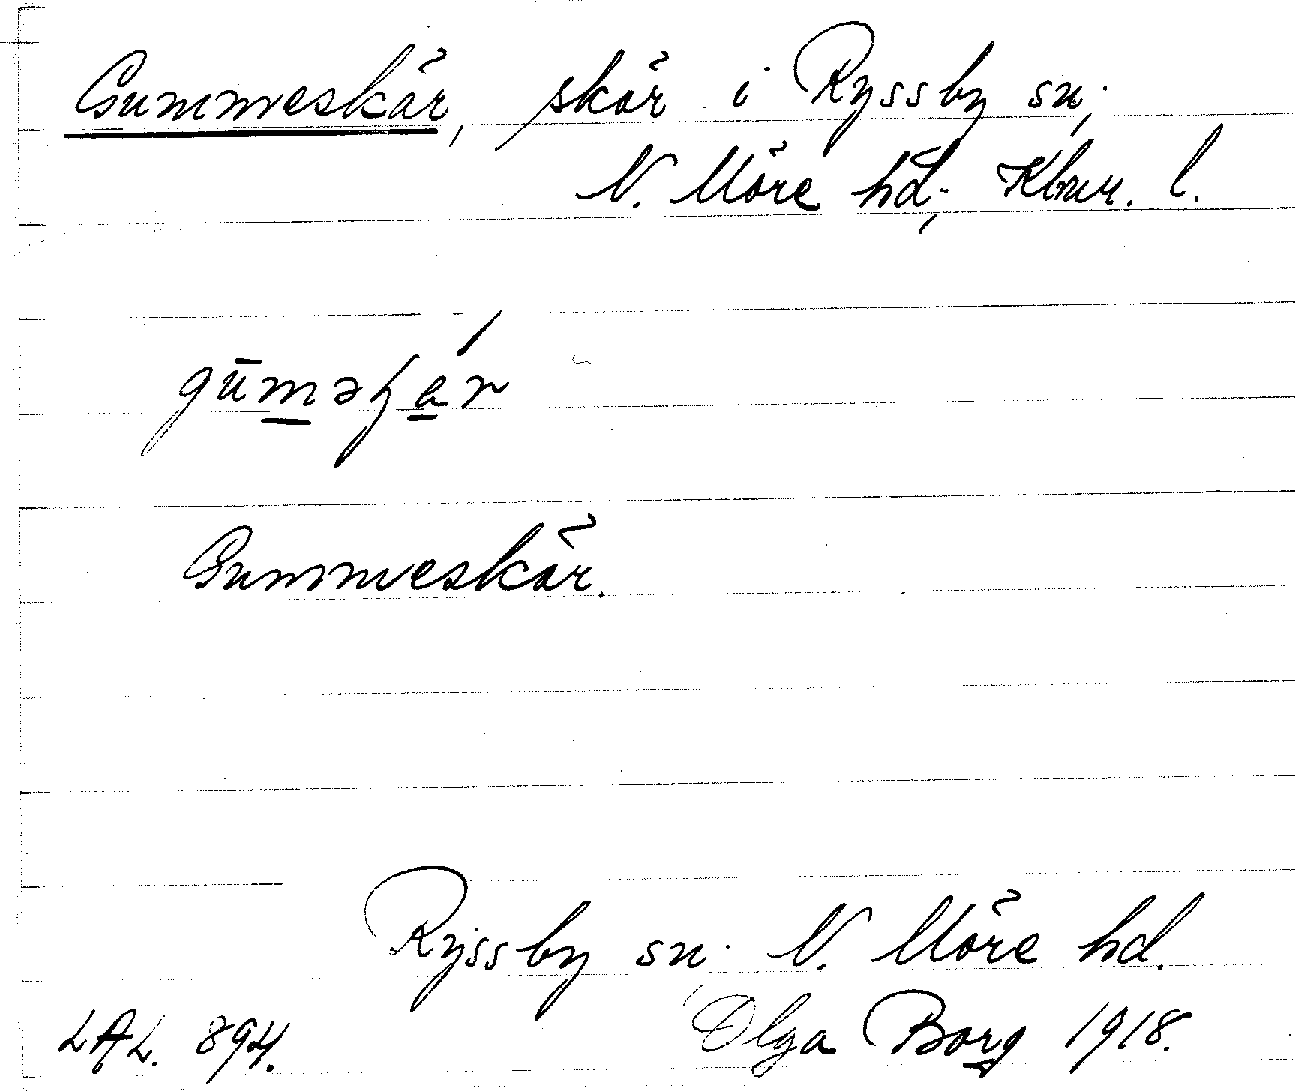 Gummeskär, skär i Ryssby sn;
N. Möre hd; Klmr. l.
Gummeskär.
Ryssby sn; N. Möre hd.
LAL. 894. Olga Borg 1918.